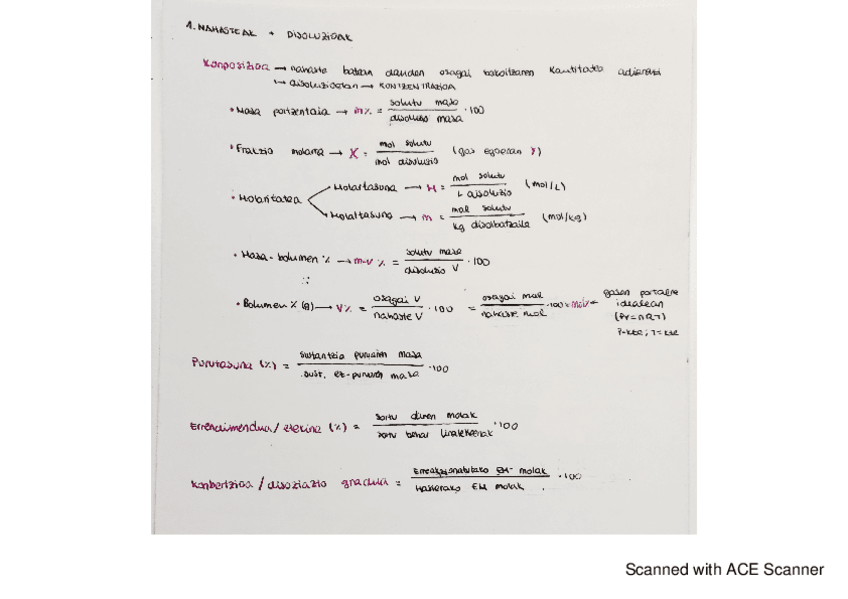 1. NAHASTEAK + DISOLUZIOAK
Konposizioa → nahaste batean dauden osagai bakoitzaren kantitatea adierazi
↳ disoluzioetan → KONTZENTRAZIOA
• Masa portzentaia → m% = solutu masa / disoluzio masa · 100
• Frakzio molarra → X = mol solutu / mol disoluzio (gas egoeran Y)
• Molaritatea
Molartasuna → M = mol solutu / L disoluzio (mol/L)
Molaltasuna → m = mol solutu / kg disolbatzaile (mol/kg)
• Masa-bolumen % → m-v % = solutu masa / disoluzio V · 100
• Bolumen % (g) → V% = osagai V / nahaste V · 100 = osagai mol / nahaste mol · 100 = mol% ← gasen portaera
idealean
(PV=nRT)
P=kte; T=kte
Purutasuna (%) = sustantzia puruaren masa / sust. ez-puruaren masa · 100
Errendimendua/etekina (%) = sortu diren molak / sortu behar liratekeenak · 100
Konbertzioa / disoziazio gradua = Erreakzionatutako EM molak / Hasierako EM molak · 100
Scanned with ACE Scanner